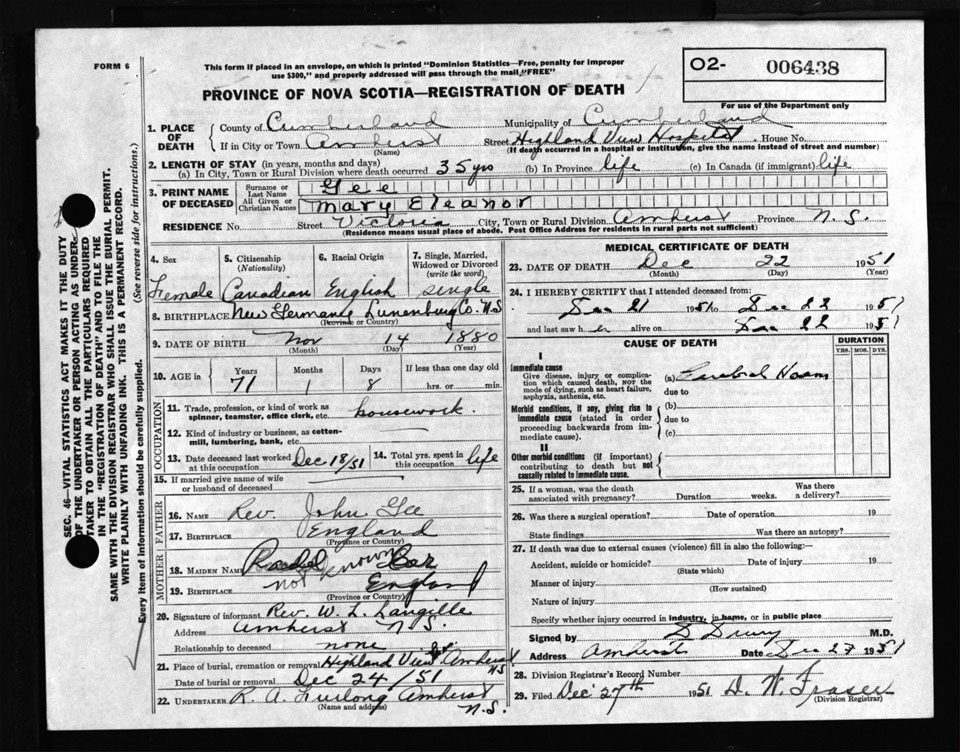 FORM 6
This form if placed in an envelope, on which is printed "Dominion Statistics—Free, penalty for improper
use $300," and properly addressed will pass through the mail "FREE"
O2- 006438
PROVINCE OF NOVA SCOTIA—REGISTRATION OF DEATH
For use of the Department only
1. PLACE OF DEATH
County of Cumberland Municipality of Cumberland
If in City or Town Amherst Street Highland View Hospital House No.
(Name) (If death occurred in a hospital or institution, give the name instead of street and number)
2. LENGTH OF STAY (in years, months and days)
(a) In City, Town or Rural Division where death occurred 35 yrs (b) In Province life (c) In Canada (if immigrant) life
3. PRINT NAME OF DECEASED
Surname or Last Name Gee
All Given or Christian Names Mary Eleanor
RESIDENCE No. Street Victoria City, Town or Rural Division Amherst Province N.S.
(Residence means usual place of abode. Post Office Address for residents in rural parts not sufficient)
4. Sex 5. Citizenship (Nationality) 6. Racial Origin 7. Single, Married, Widowed or Divorced (write the word)
Female Canadian English single
8. BIRTHPLACE New Germany Lunenburg Co. N.S
(Province or Country)
9. DATE OF BIRTH Nov 14 1880
(Month) (Day) (Year)
10. AGE in Years Months Days If less than one day old
71 1 8 hrs. or min.
OCCUPATION
11. Trade, profession, or kind of work as spinner, teamster, office clerk, etc. housework.
12. Kind of industry or business, as cotton-mill, lumbering, bank, etc
13. Date deceased last worked at this occupation Dec 18/51 14. Total yrs. spent in this occupation life
15. If married give name of wife or husband of deceased
FATHER
16. NAME Rev. John Gee
17. BIRTHPLACE England
(Province or Country)
MOTHER
18. MAIDEN NAME Rachel
not known
19. BIRTHPLACE England
(Province or Country)
20. Signature of informant Rev. W. L. Langille
Address Amherst N.S.
Relationship to deceased none
21. Place of burial, cremation or removal Highland View Amherst NS
Date of burial or removal Dec 24/51
22. UNDERTAKER R. A. Furlong Amherst
(Name and address) N.S.
MEDICAL CERTIFICATE OF DEATH
23. DATE OF DEATH Dec 22 1951
(Month) (Day) (Year)
24. I HEREBY CERTIFY that I attended deceased from:
Dec 21 1951 to Dec 22 1951
and last saw her alive on Dec 22 1951
CAUSE OF DEATH
DURATION
YRS. MOS. DYS.
I
Immediate cause
Give disease, injury or complication which caused death, NOT the mode of dying, such as heart failure, asphyxia, asthenia, etc.
(a) Cerebral
due to
Morbid conditions, if any, giving rise to immediate cause (stated in order proceeding backwards from immediate cause).
(b)
due to
(c)
II
Other morbid conditions (if important) contributing to death but not causally related to immediate cause.
25. If a woman, was the death associated with pregnancy? Duration weeks. Was there a delivery?
26. Was there a surgical operation? Date of operation 19
State findings Was there an autopsy?
27. If death was due to external causes (violence) fill in also the following:—
Accident, suicide or homicide? Date of injury 19
(State which)
Manner of injury
(How sustained)
Nature of injury
Specify whether injury occurred in industry, in home, or in public place
Signed by D Drury M.D.
Address Amherst Date Dec 27 1951
28. Division Registrar's Record Number
29. Filed Dec 27th 1951 D. W. Fraser
(Division Registrar)
SEC. 46—VITAL STATISTICS ACT MAKES IT THE DUTY
OF THE UNDERTAKER OR PERSON ACTING AS UNDER-
TAKER TO OBTAIN ALL THE PARTICULARS REQUIRED
IN THE "REGISTRATION OF DEATH" AND TO FILE THE
SAME WITH THE DIVISION REGISTRAR WHO SHALL ISSUE THE BURIAL PERMIT.
WRITE PLAINLY WITH UNFADING INK. THIS IS A PERMANENT RECORD.
Every item of information should be carefully supplied. (See reverse side for instructions.)